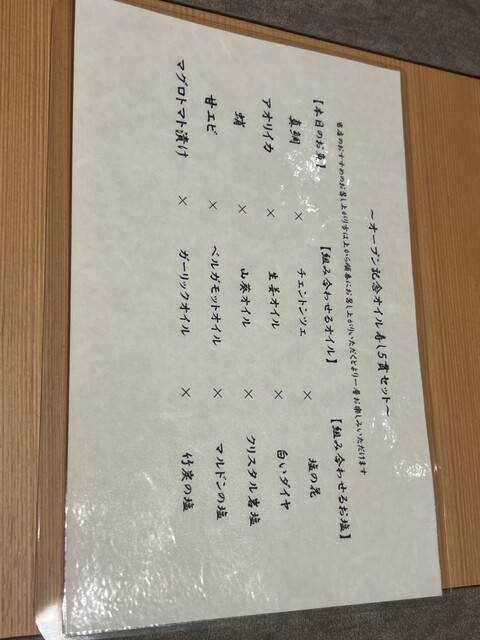 ～オープン記念オイル寿し５貫セット～
当店のおすすめのお召し上がり方は上から順番にお召し上がりいただくとより一層お楽しみいただけます
【本日のお魚】 【組み合わせるオイル】 【組み合わせるお塩】
真鯛 × チェントンツェ × 塩の花
アオリイカ × 生姜オイル × 白いダイヤ
蛸 × 山葵オイル × クリスタル岩塩
甘エビ × ベルガモットオイル × マルドンの塩
マグロトマト漬け × ガーリックオイル × 竹炭の塩